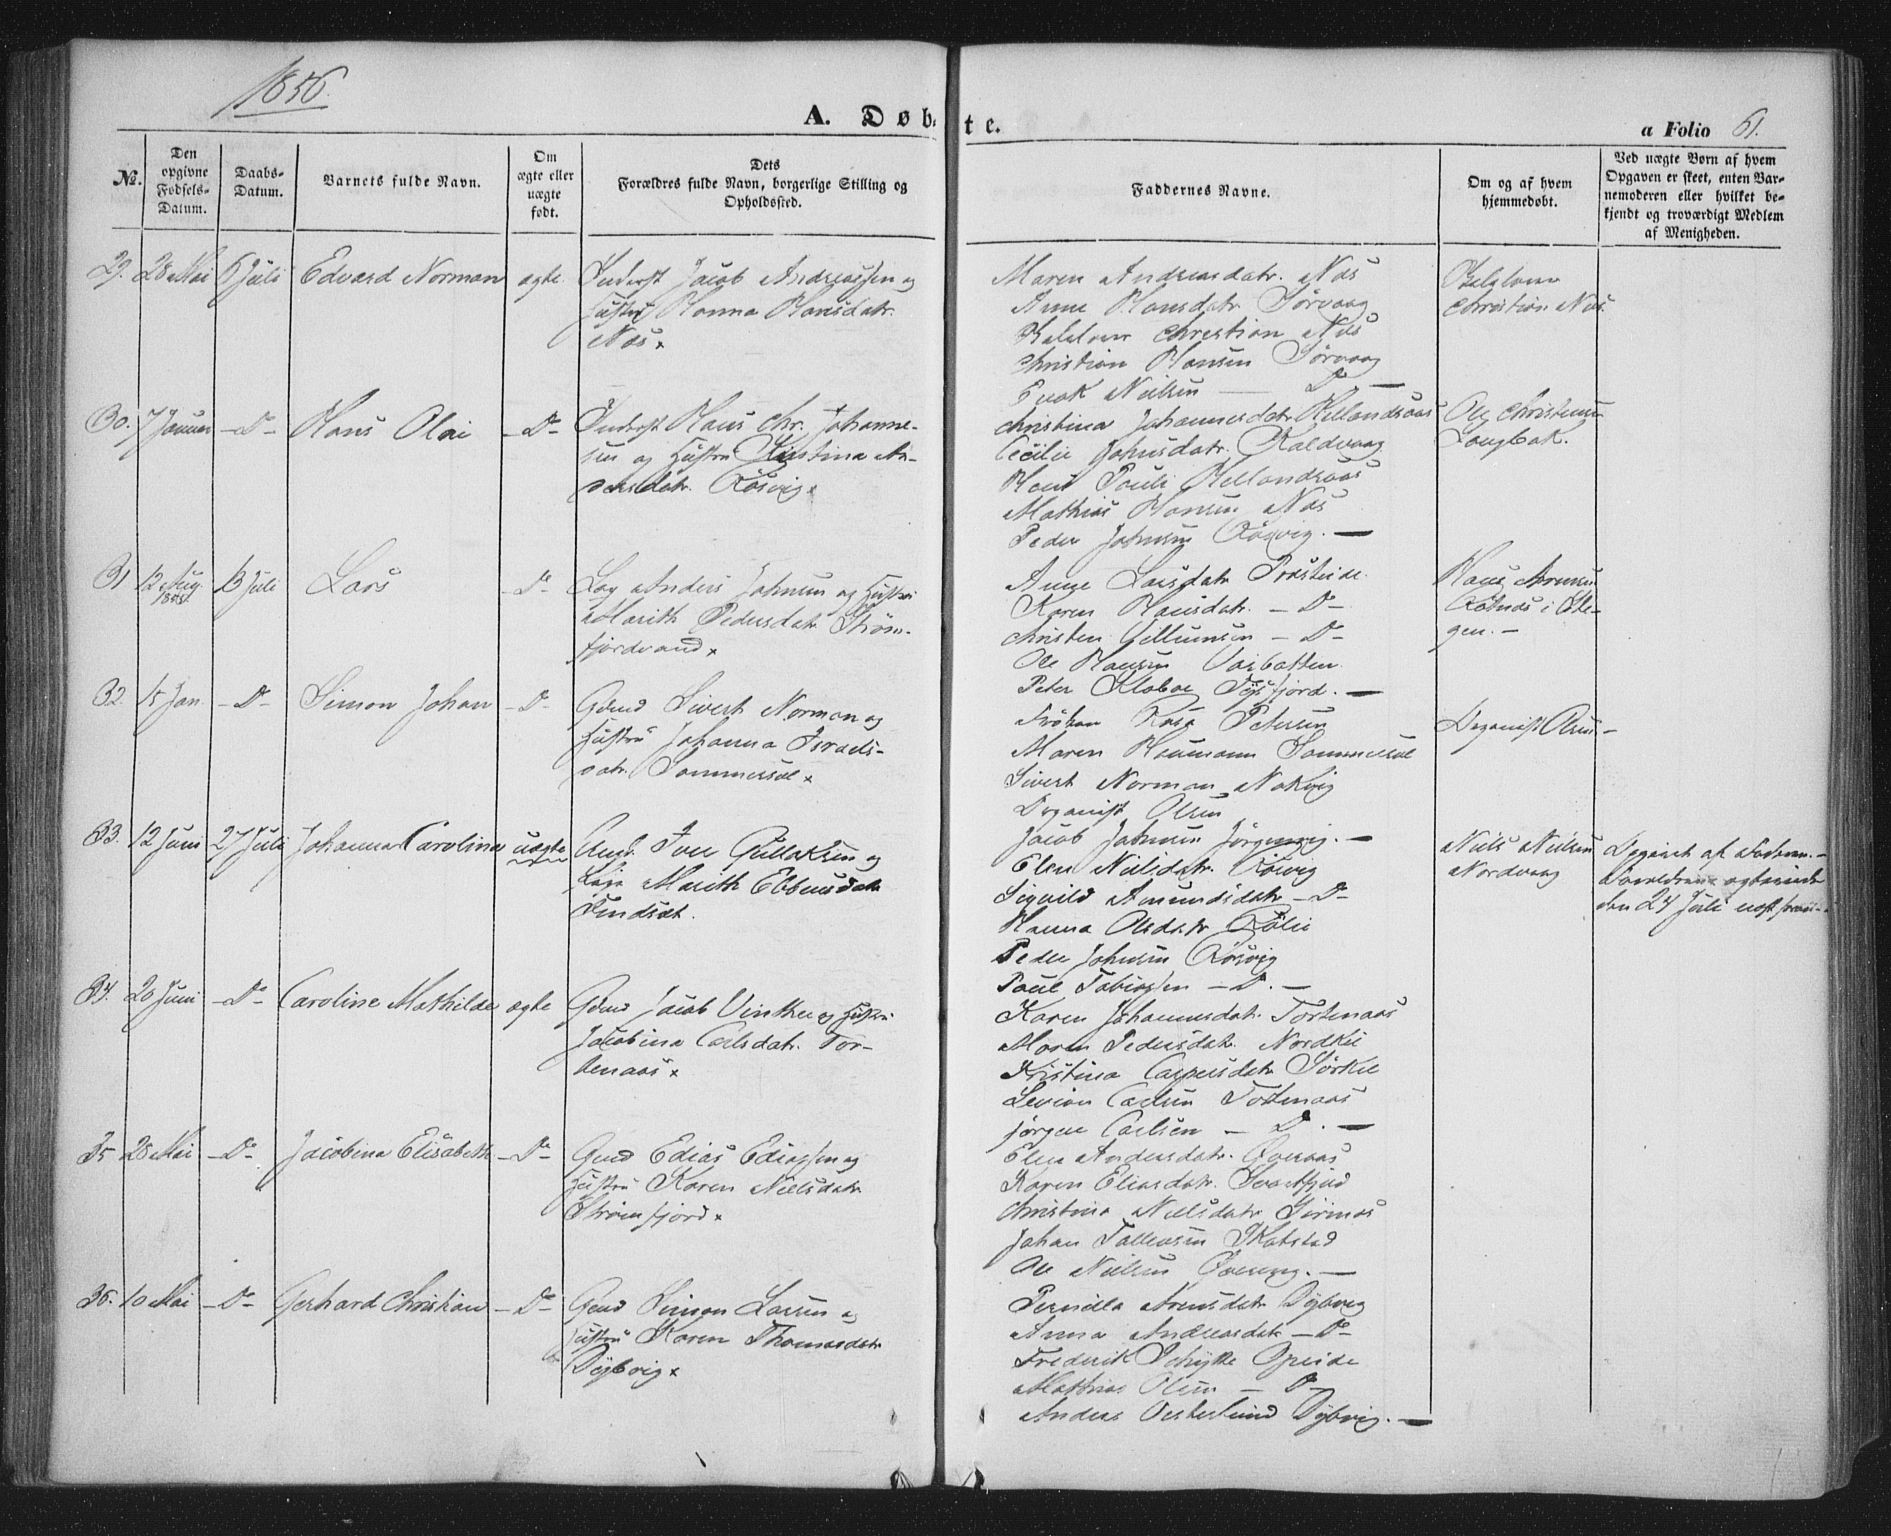 1856.
A. Døbte.
a Folio 61.
№.
Den opgivne Fødsels-Datum.
Daabs-Datum.
Barnets fulde Navn.
Om ægte eller uægte født.
Dets Forældres fulde Navn, borgerlige Stilling og Opholdssted.
Faddernes Navne.
Om og af hvem hjemmedøbt.
Ved uægte Børn af hvem Opgaven er skeet, enten Barnemoderen eller hvilket bekjendt og troværdigt Medlem af Menigheden.
29. 28 Mai 6 Juli Edvard Norman ægte
Inderst Jacob Andreassen og
Hustru Hanna Hansdatr.
Næs.
Maren Andreasdatr. Næs
Anne Hansdatr Sørvaag
Christian Næs
Christian Hansen Sørvaag
Nielsen — Do —
Christian Næs.
30. 7 Januar — Do — Hans Olai — Do —
Inderst Hans Chr. Johanne-
sen og Hustru Kristina An-
dersdatr. Røsvig.
Christina Johannesdatr. Hellandsaas
Cecilie Johnsdatr. Kaldvaag
Hans Pauli Hellandsaas
Mathias Hansen Næs
Peder Johnsen Røsvig. —
Ole Christensen
Langbak.
31 12 Aug. 1855 13 Juli Lars — Do —
Lap Anders Johnsen og Hustru
Marith Pedersdatr Strøm-
fjordvand
Anne Larsdatr
Karen Hansdatr. — Do —
Christen — Do —
Ole Hansen
Peter Kloboe Tysfjord. —
Hans
i Ste-
gen. —
32. 15 Jan — Do — Simon Johan — Do —
Gdmd Sivert Norman og
Hustru Johanna Israels-
datr. Sommersel
Frøken Petersen
Maren Sommersel
Sivert Norman Nakvig
Organist Olsen
Organist Olsen —
33. 12 Juni 27 Juli Johanna Carolina uægte
Ungk. Iver Gullaksen og
Marith Ebbensdatr
Tindsæt.
Jacob Johnsen —
Elen Nielsdatr. Røsvig
Sigvild Amundsdatr — Do —
Hanna Olsdatr
Peder Johnsen Røsvig
Paul Tobiassen — Do. —
Niels Nielsen
Nordvaag
af
den 24 Juli
34. 20 Juni — Do — Caroline Mathilde ægte
Gdmd Jacob Vinther og Hustru
Jacobina Carlsdatr. Tor-
tenaas
Karen Johannesdatr. Tortenaas
Maren Pedersdatr. Nordkil
Kristina Caspersdatr Sørkil
Carlsen Tortenaas
Jørgen Carlsen — Do. —
35 28 Mai — Do — Jacobina Elisabeth — Do —
Gmd Edias Ediassen og
Hustru Karen Nielsdatr
Strømfjord
Elen Andersdatr.
Karen Eliasdatr. Svartfjeld
Christina Nielsdatr Sørnæs
Johan Tollevsen Skotstad
Ole Nielsen —
36. 10 Mai — Do — Gerhard Christian — Do —
Gmd Simon Larsen og
Hustru Karen Thomasdatr
Dybvig
Pernilla Arensdatr Dybvig
Anna Andreasdatr — Do —
Frederik Schytte Opeide
Mathias Olsen — Do
Anders Vesterlund Dybvig. —